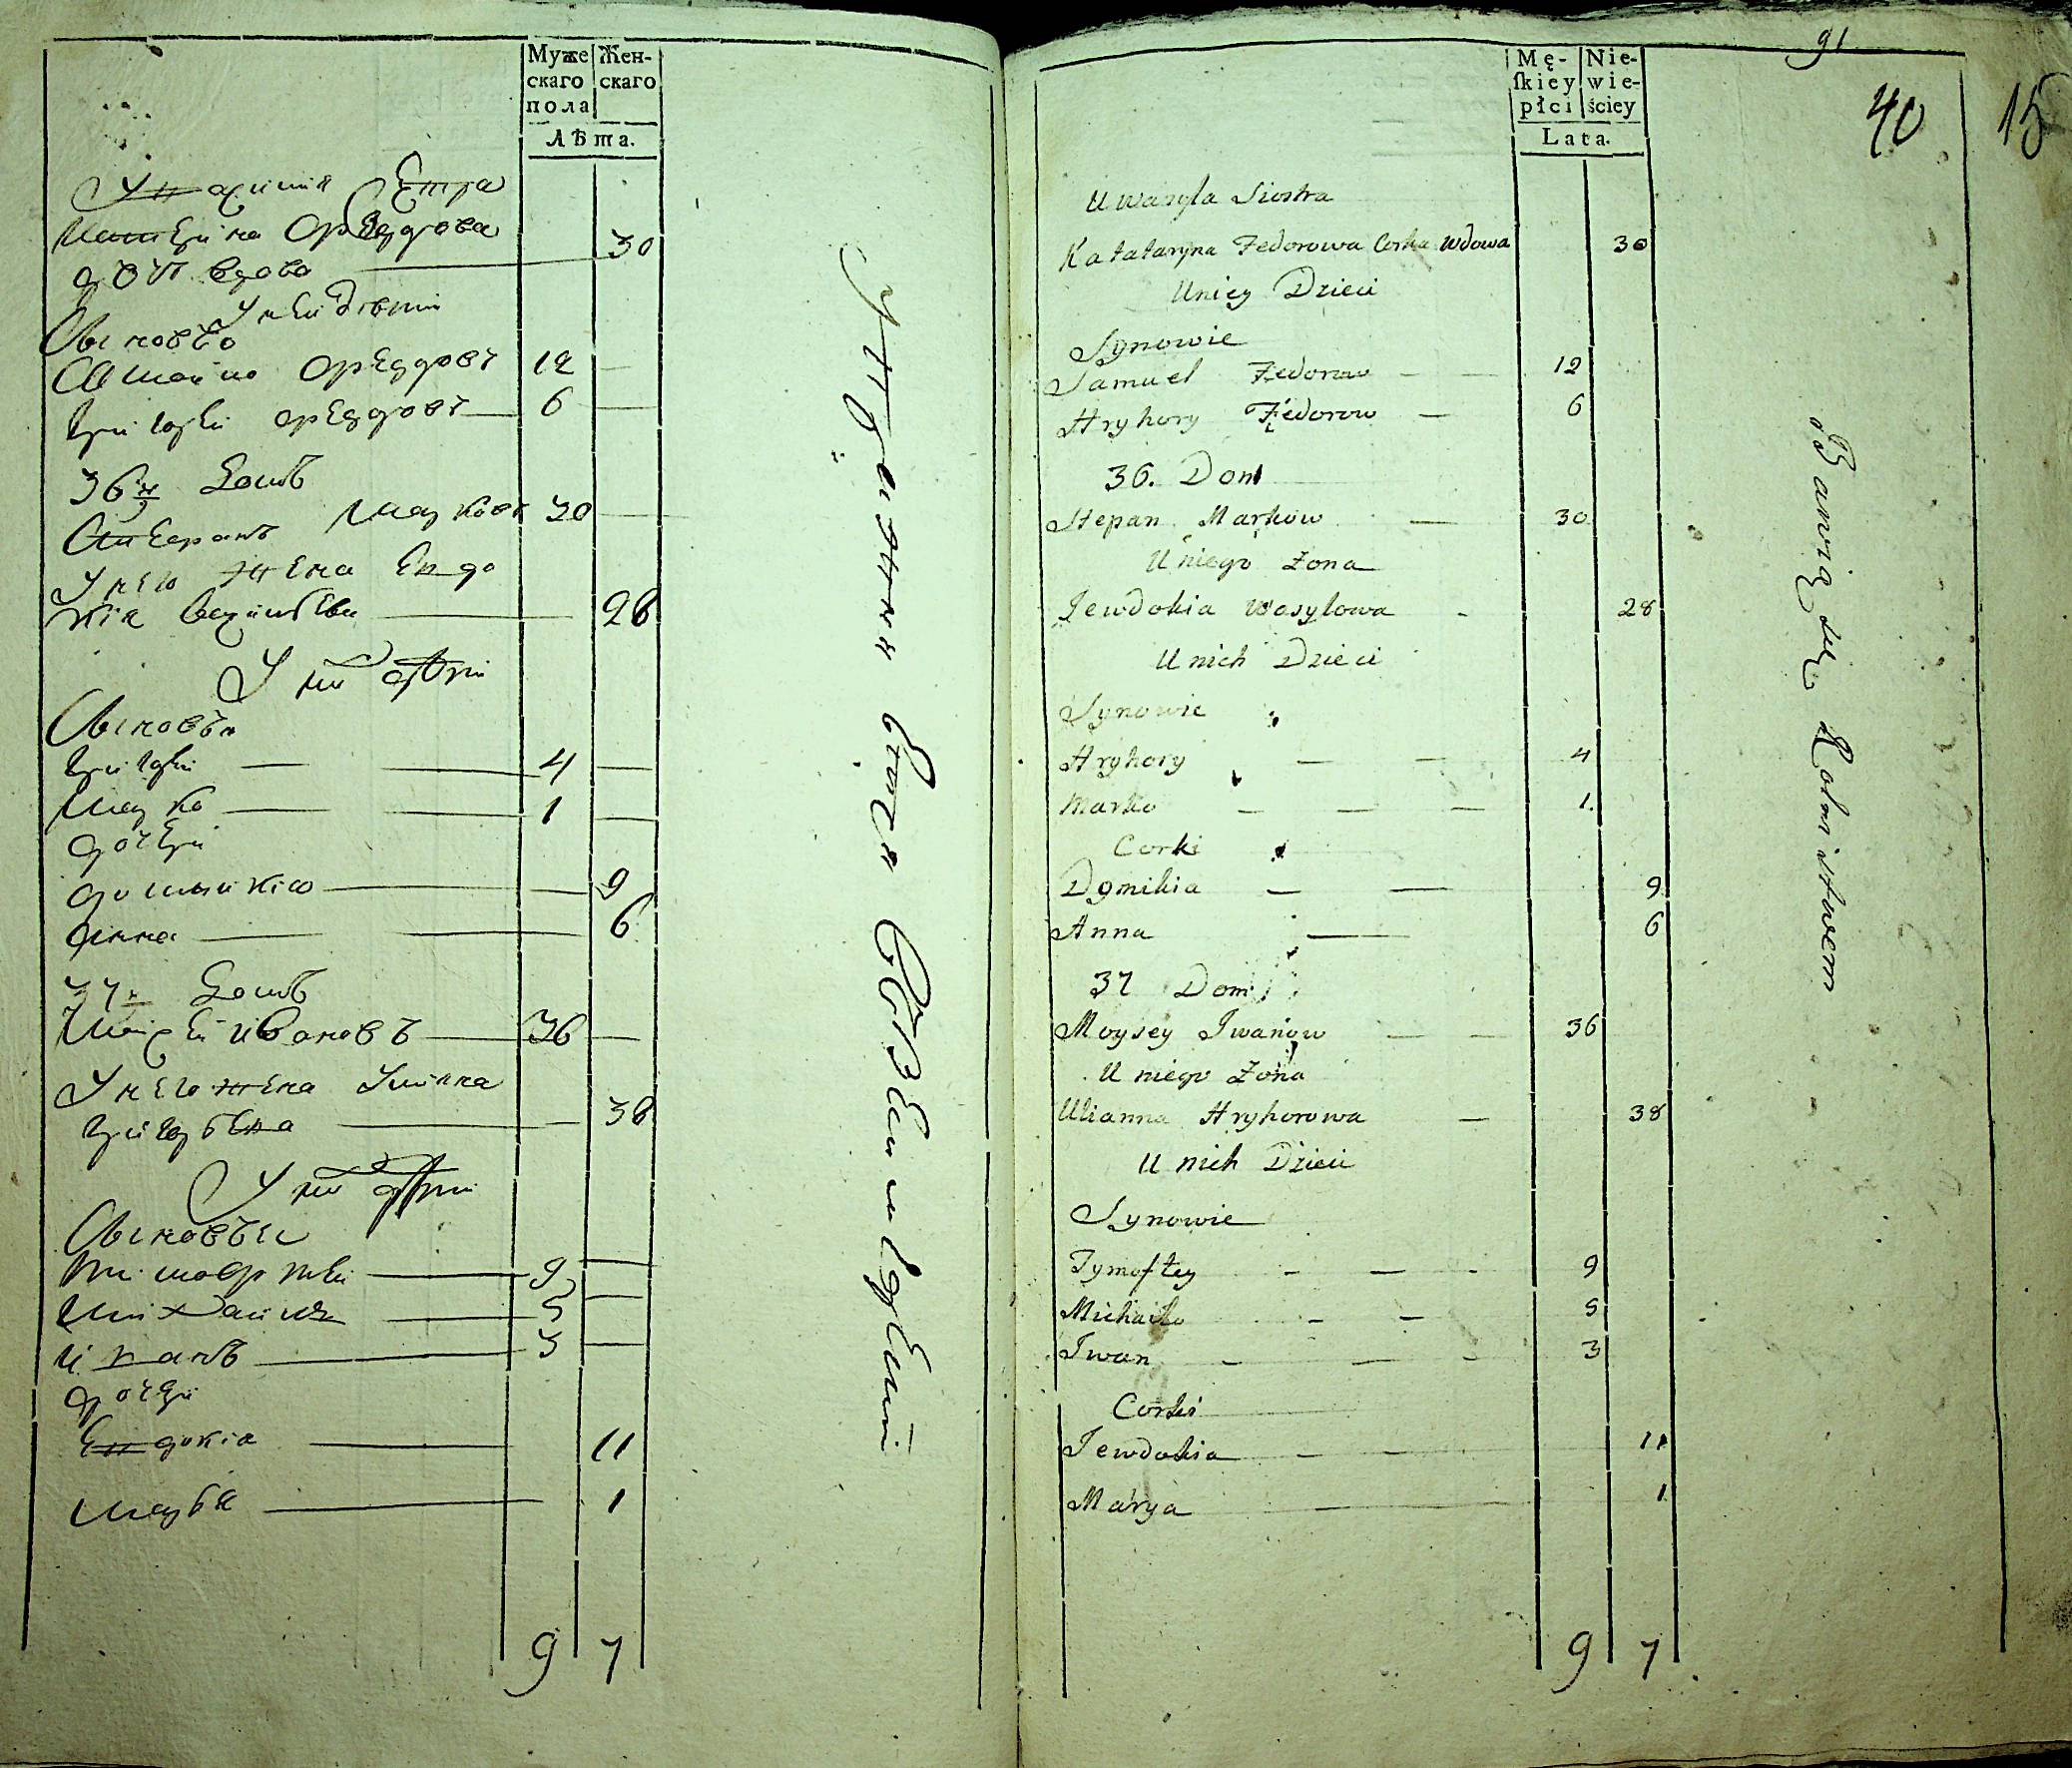 Муже
скаго
пола
Жен-
скаго
Лѣта.
У Василія Сестра
Катерина Ѳедорова 30
дочь вдова
У неи Дѣти
Сыновья
Самойло Ѳедоровъ 12
Григорей Ѳедоровъ 6
36й Домъ
Степанъ Марковъ 30
У него жена Евдо
кія Васильева 28
У нихъ дѣти
Сыновья
Григорей 4
Марко 1
дочери
Домникія 9
Анна 6
37й Домъ
Моисей Ивановъ 36
У него жена Ульяна
Григорьева 38
У нихъ дѣти
Сыновья
Тимофей 9
Михайла 5
Иванъ 3
дочери
Евдокія 11
Марья 1
9 7
Упражняются Земледелием
91
40 15
Mę-
skiey
płci
Nie-
wie-
ściey
Lata.
U Wasyla Siostra
Katataryna Fedorowa Corka Wdowa 30
Uniey Dzieci
Synowie
Samuel Fedorow 12
Hryhory Fiedorow 6
36. Dom
Stepan Markow 30
U niego Żona
Jewdokia Wasylowa 28
U nich Dzieci
Synowie
Hryhory 4
Marko 1.
Corki
Domikia 9
Anna 6
37 Dom
Moysey Jwanow 36
U niego Żona
Ulianna Hryhorowa 38
U nich Dzieci
Synowie
Tymoftey 9
Michaiło 5
Jwan 3
Corki
Jewdokia 11
Marya 1
9 7
Bawią się Rolnistwem